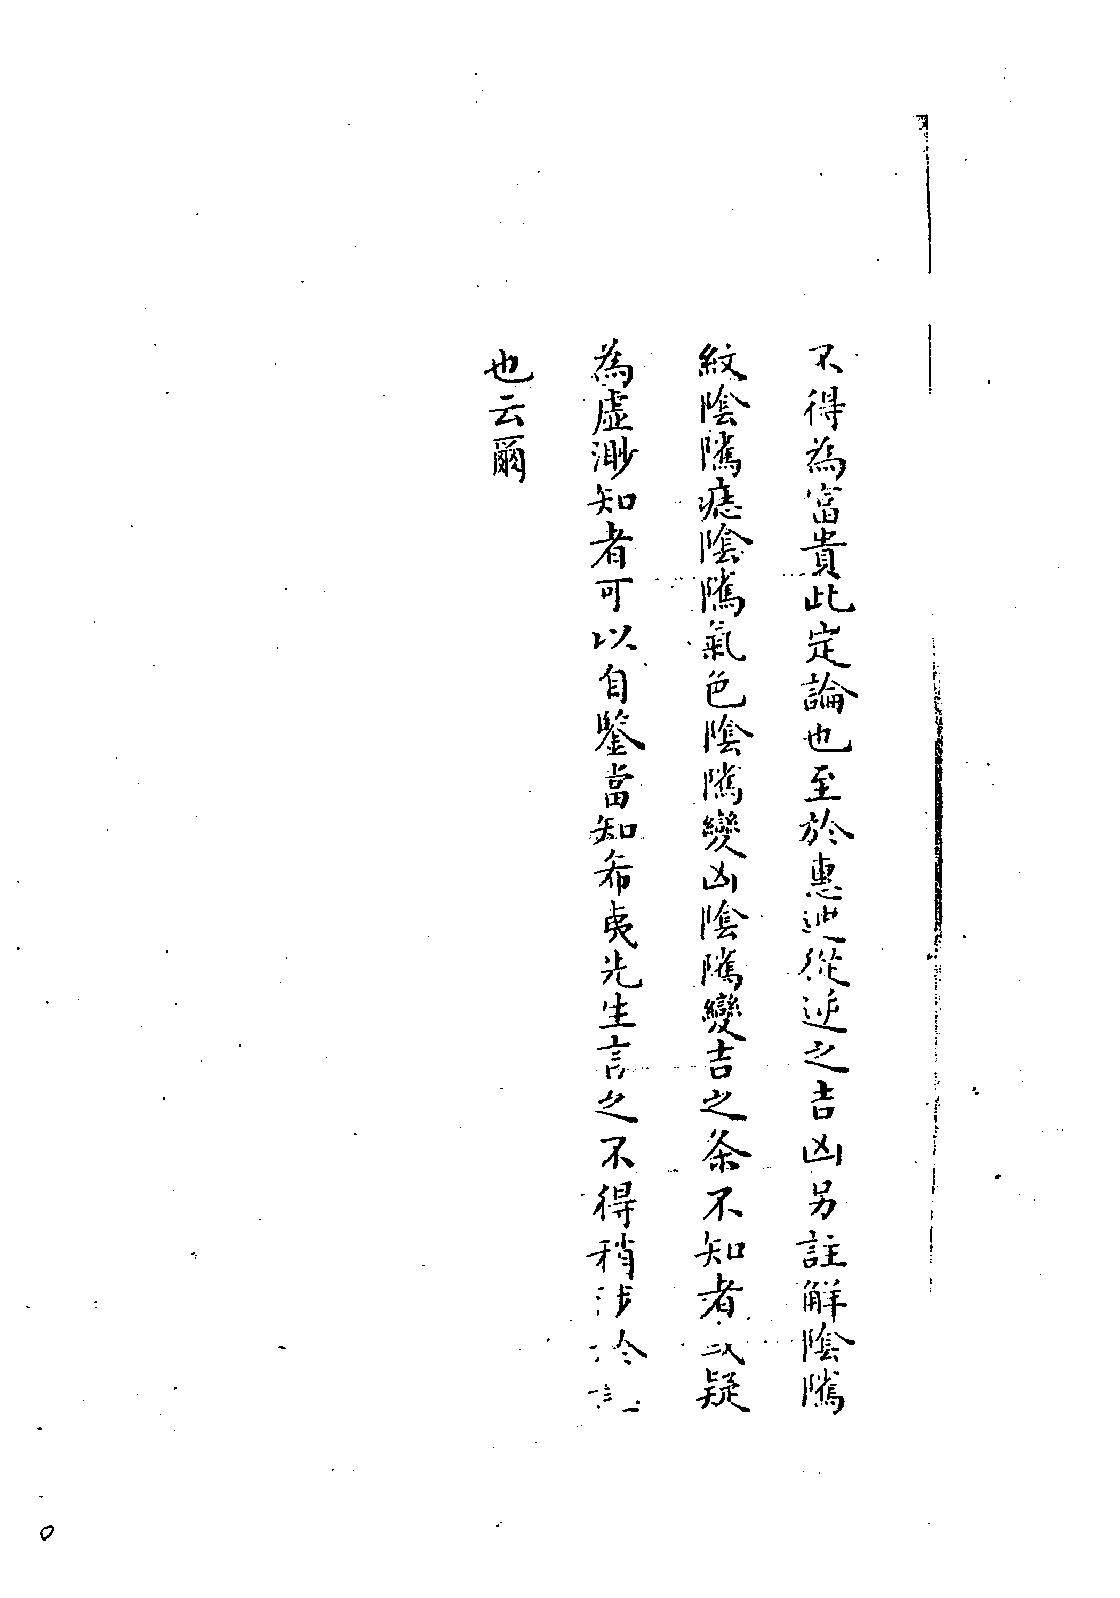 不得為富貴此定論也至於惠迪從逆之吉凶另註解陰隲
紋陰隲痣陰隲氣色陰隲變凶陰隲變吉之条不知者以疑
為虛渺知者可以自鑒當知希夷先生言之不得稍涉於
也云爾